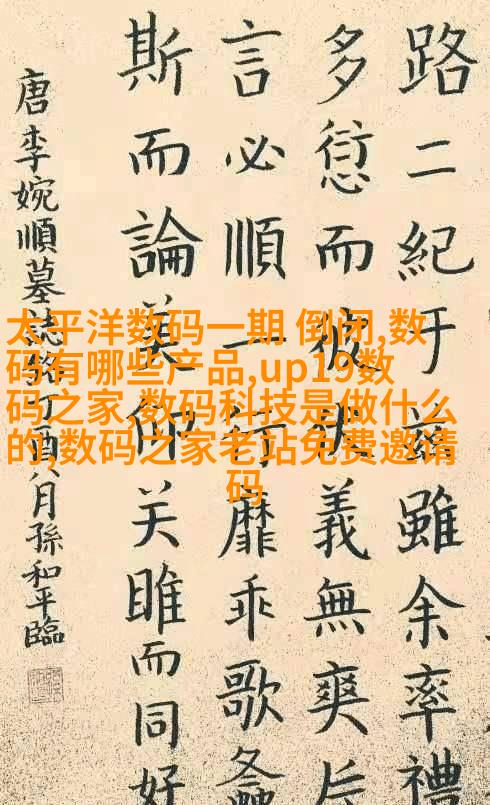 路二紀于茲雖余率禮
多愆而彼義無爽
言必順一行靡乖歌螽
斯而論美关雎而同好
唐李婉順墓誌銘丁酉八月孫和平臨
太平洋数码一期 倒闭,数
码有哪些产品,up19数
码之家,数码科技是做什么
的,数码之家老站免费邀请
码